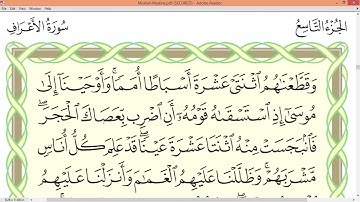 Mushaf-Madina.pdf (SECURED) - Adobe Reader
الجُزْءُ التَّاسِعُ
سُورَةُ الأَعْرَافِ
وَقَطَّعْنَٰهُمُ ٱثْنَتَىْ عَشْرَةَ أَسْبَاطًا أُمَمًا ۚ وَأَوْحَيْنَآ إِلَىٰ
مُوسَىٰٓ إِذِ ٱسْتَسْقَىٰهُ قَوْمُهُۥٓ أَنِ ٱضْرِب بِّعَصَاكَ ٱلْحَجَرَ ۖ
فَٱنۢبَجَسَتْ مِنْهُ ٱثْنَتَا عَشْرَةَ عَيْنًا ۖ قَدْ عَلِمَ كُلُّ أُنَاسٍ
مَّشْرَبَهُمْ ۚ وَظَلَّلْنَا عَلَيْهِمُ ٱلْغَمَٰمَ وَأَنزَلْنَا عَلَيْهِمُ